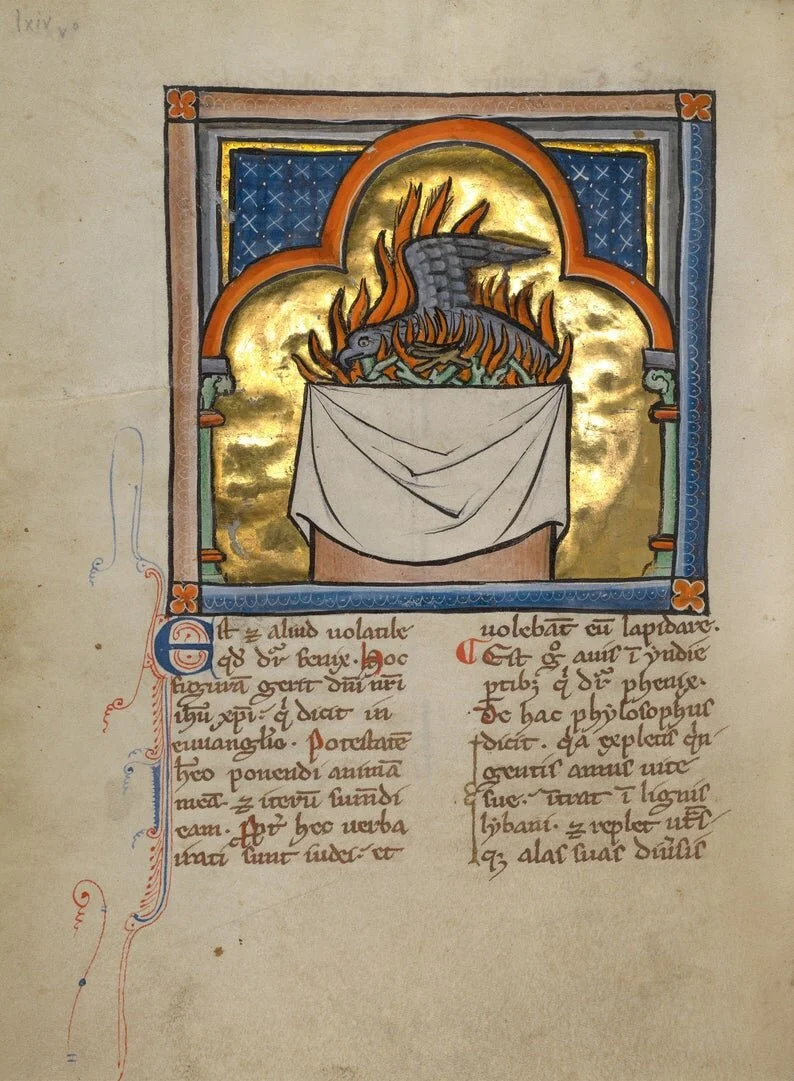 lxiv vº
Est ⁊ aliud uolatile
qd̄ dr̄ fenix. Hoc
figurā gerit dn̄i nr̄i
ihū xp̄i. q̄ dicit in
euuanglīo. Potestatē
h̄eo ponendi animā
meā. ⁊ iterū sum̄di
eam. Ꝓpt̄ hec uerba
irati sunt iudei. et
uolebāt eū lapidare.
Est g̊ auis ī yndie
ptib; q̄ dr̄ phenix.
De hac phylosophus
dicit. q̄a expletis q̄n
gentis annis uite
sue. īt̄rat ī lignis
lybani. ⁊ replet ut̄s
q; alas suas diūsis